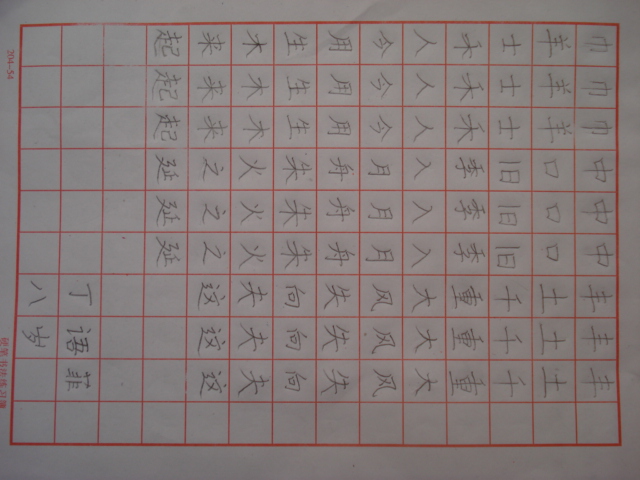 巾巾巾中中中丰丰丰
羊羊羊口口口土土土
士士士旧旧旧千千千
禾禾禾季季季重重重
人人人入入入大大大
今今今月月月风风风
用用用舟舟舟失失失
生生生朱朱朱向向向
木木木火火火夫夫夫
来来来之之之这这这
起起起延延延
丁语菲
八岁
204-54
硬笔书法练习簿